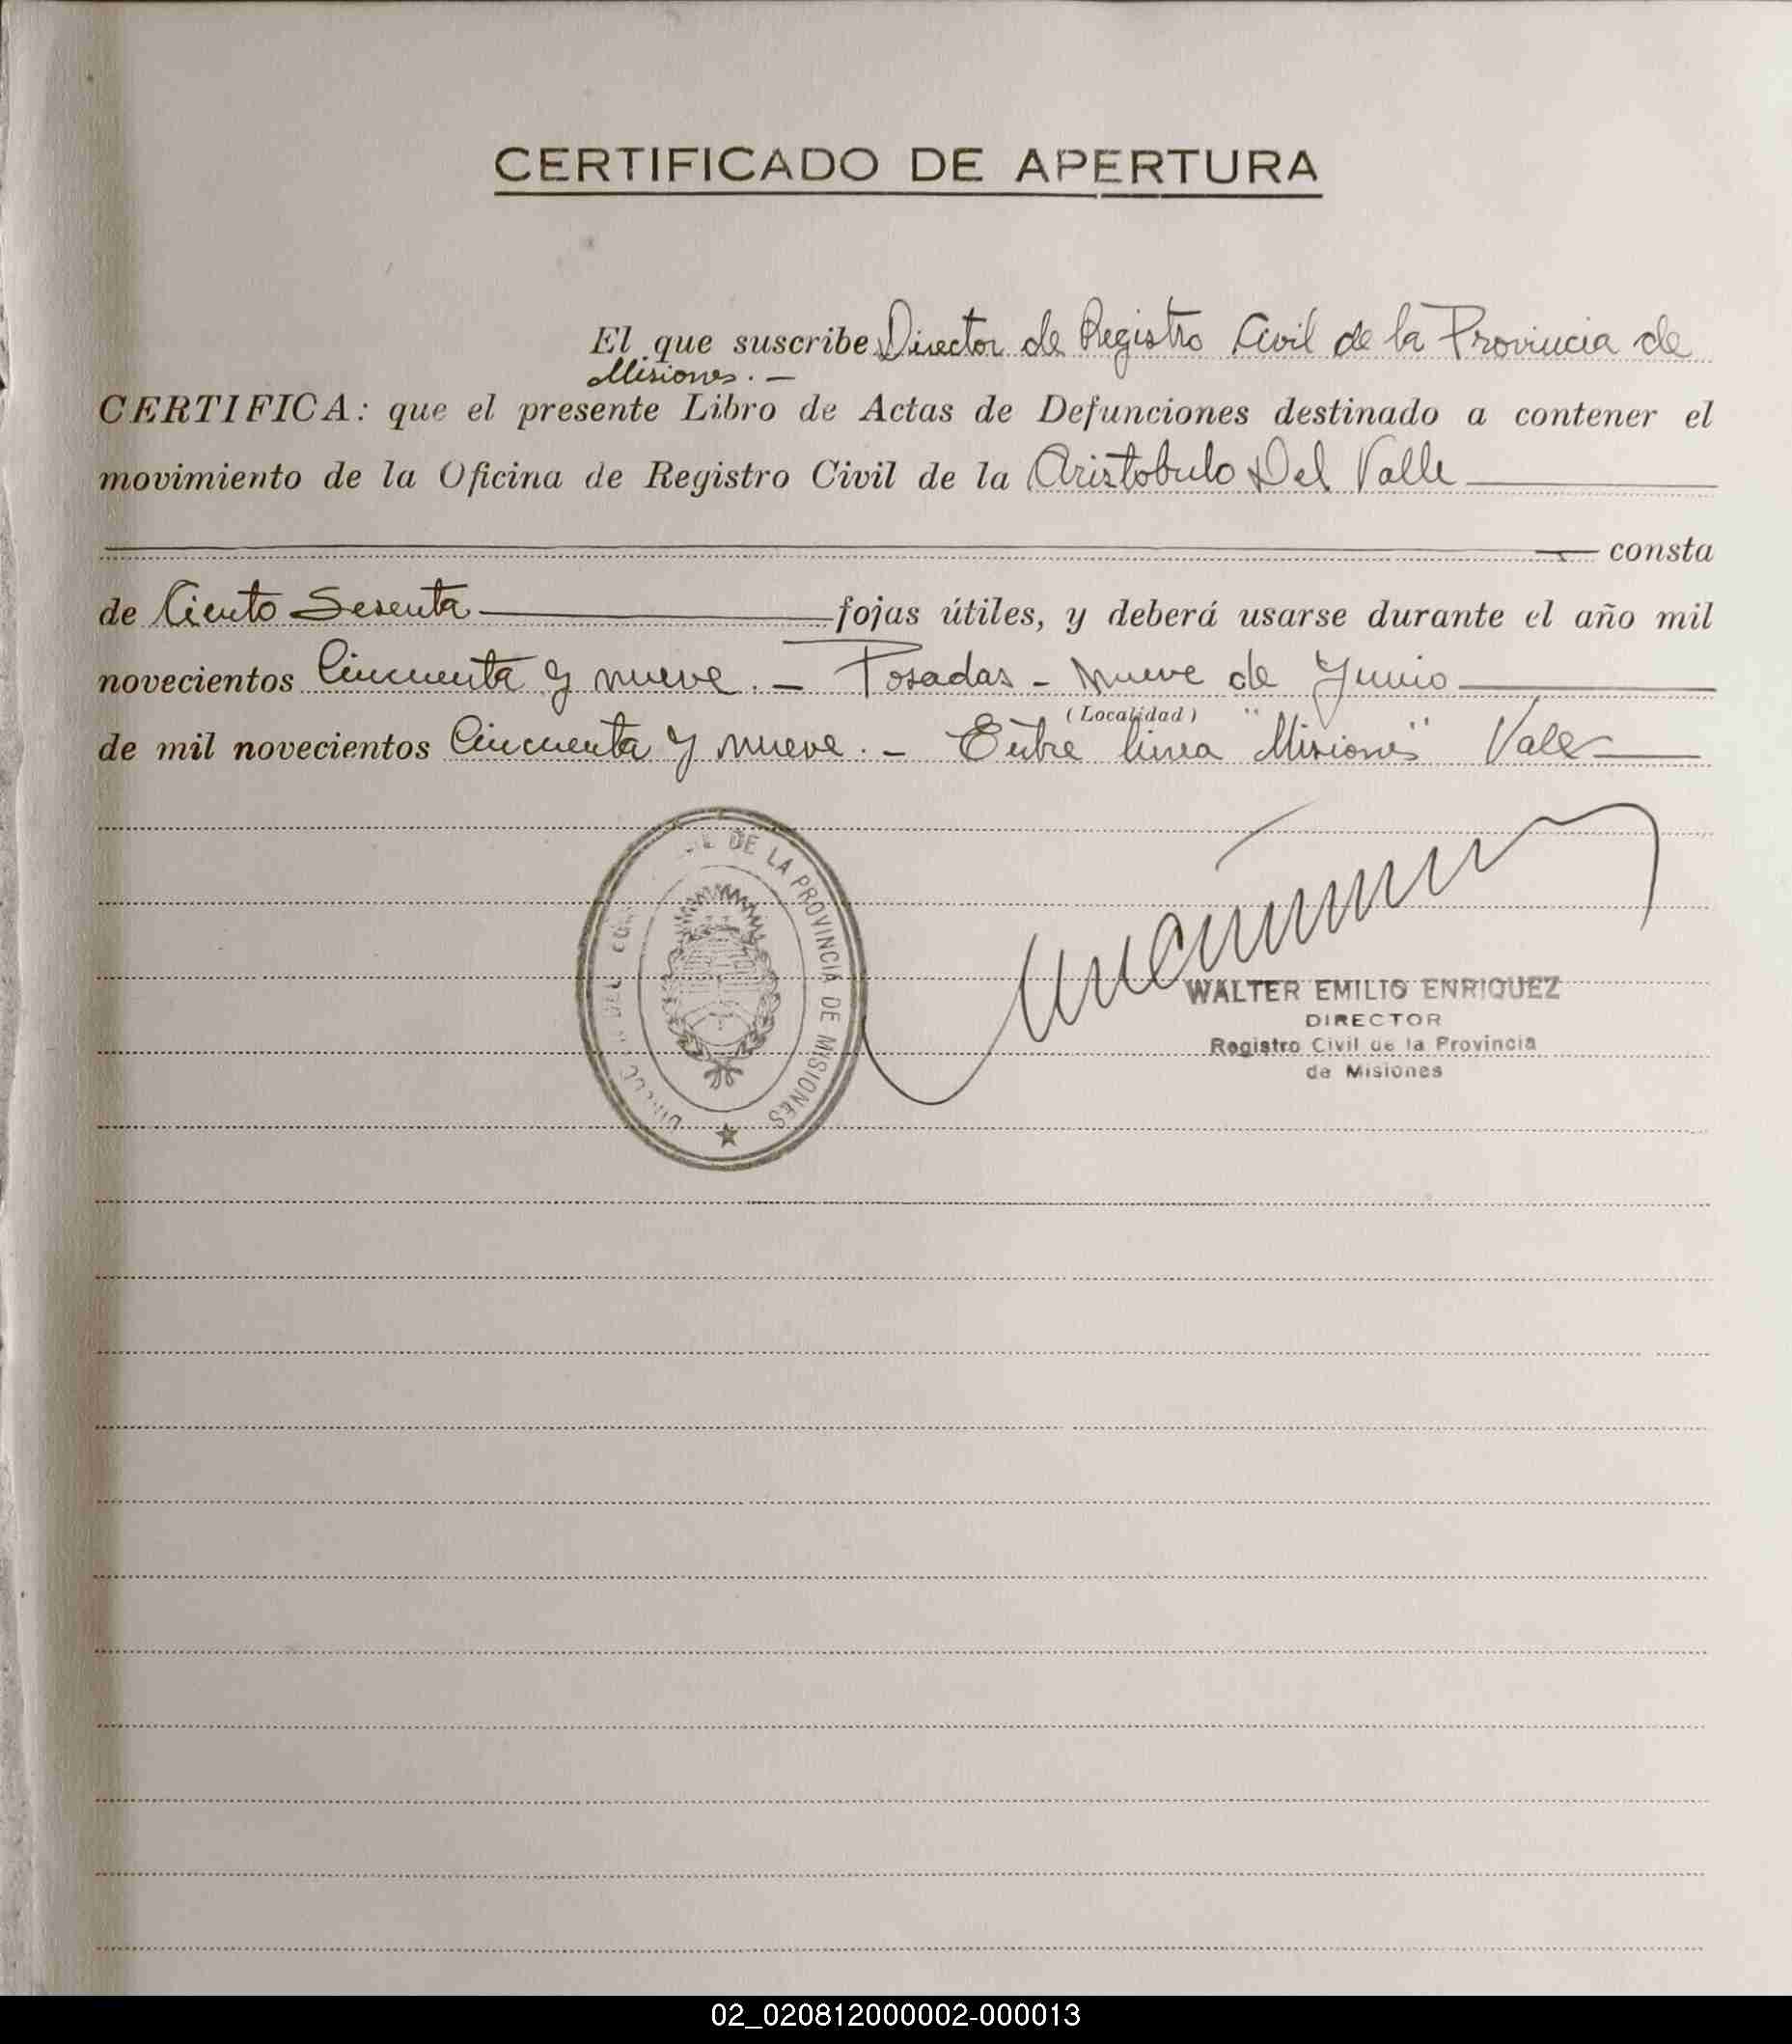 CERTIFICADO DE APERTURA
El que suscribe Director de Registro Civil de la Provincia de
Misiones. —
CERTIFICA: que el presente Libro de Actas de Defunciones destinado a contener el
movimiento de la Oficina de Registro Civil de la Aristobulo Del Valle
consta
de Ciento Sesenta fojas útiles, y deberá usarse durante el año mil
novecientos Cincuenta y nueve. — Posadas - Nueve de Junio
(Localidad)
de mil novecientos Cincuenta y nueve. — Entre linea "Misiones" Vale
DE LA PROVINCIA DE MISIONES
WALTER EMILIO ENRIQUEZ
DIRECTOR
Registro Civil de la Provincia
de Misiones
02_020812000002-000013